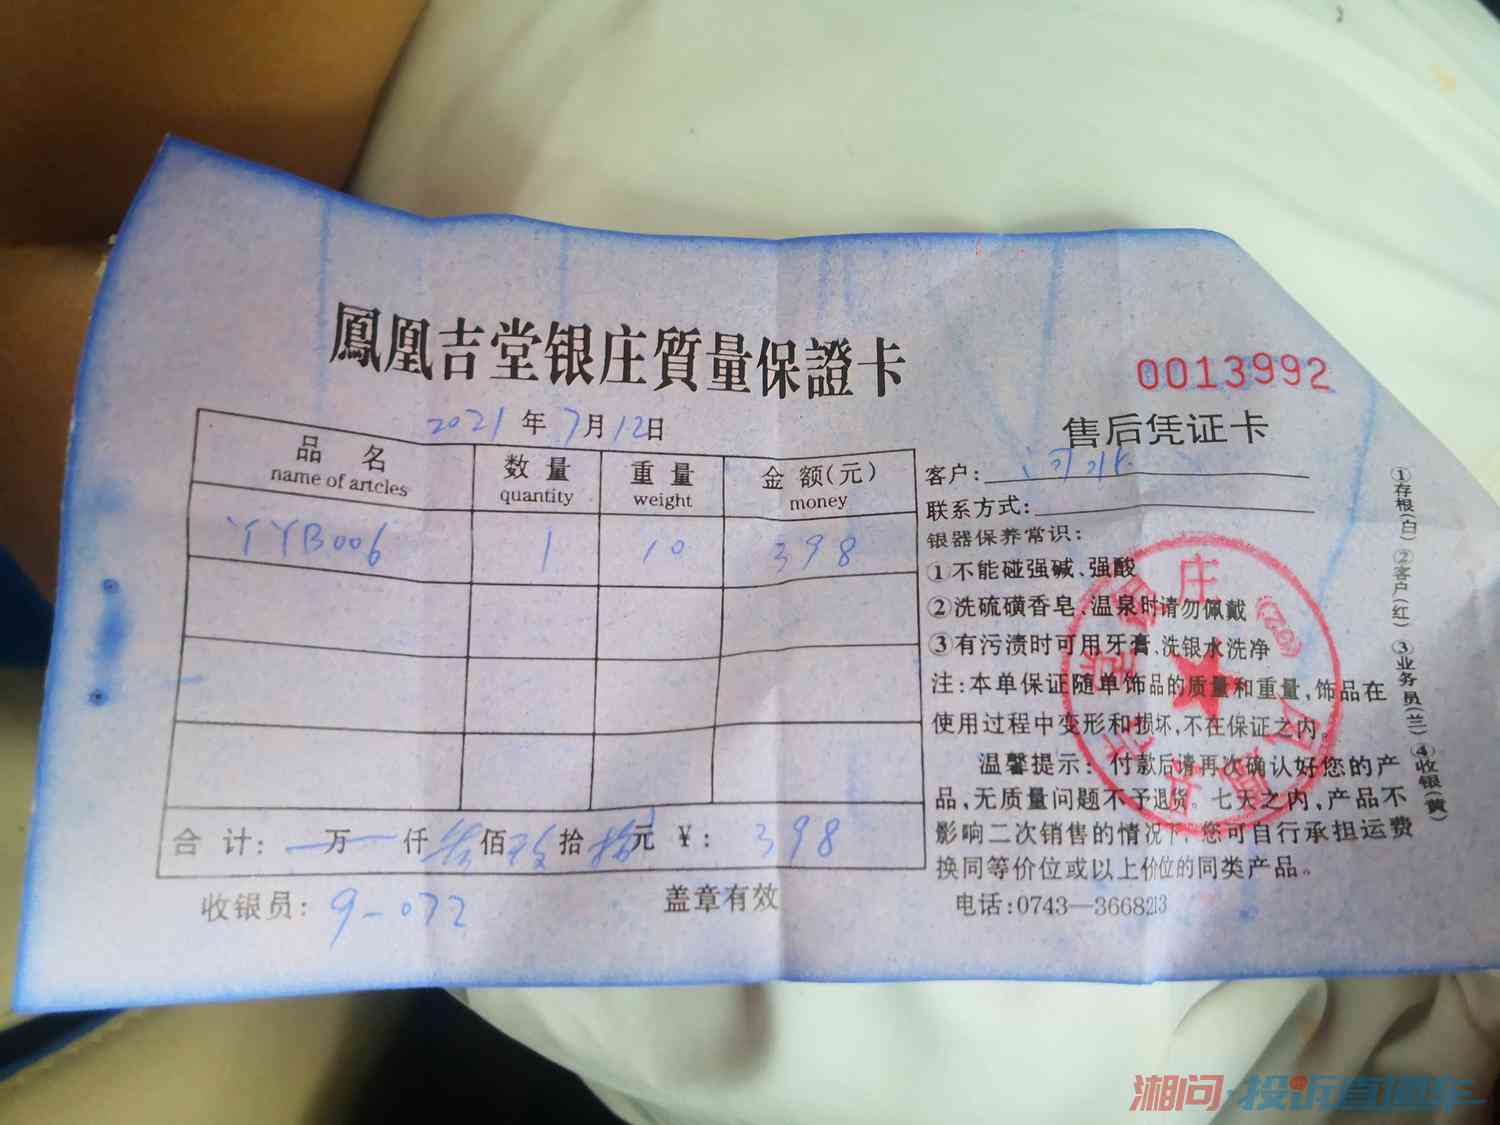 鳳凰吉堂银庄質量保證卡
0013992
2021年7月12日
售后凭证卡
品名 数量 重量 金额(元)
name of artcles quantity weight money
YYB006 1 10 398
合计: 万 仟 叁佰玖拾捌元 ¥: 398
收银员: 9-072
盖章有效
客户:
联系方式:
银器保养常识:
①不能碰强碱、强酸
②洗硫磺香皂、温泉时请勿佩戴
③有污渍时可用牙膏、洗银水洗净
注:本单保证随单饰品的质量和重量,饰品在
使用过程中变形和损坏,不在保证之内。
温馨提示: 付款后请再次确认好您的产
品,无质量问题不予退货。七天之内,产品不
影响二次销售的情况下,您可自行承担运费
换同等价位或以上价位的同类产品。
电话:0743—3668213
①存根(白) ②客户(红) ③业务员(兰) ④收银(黄)
湘问·投诉直通车